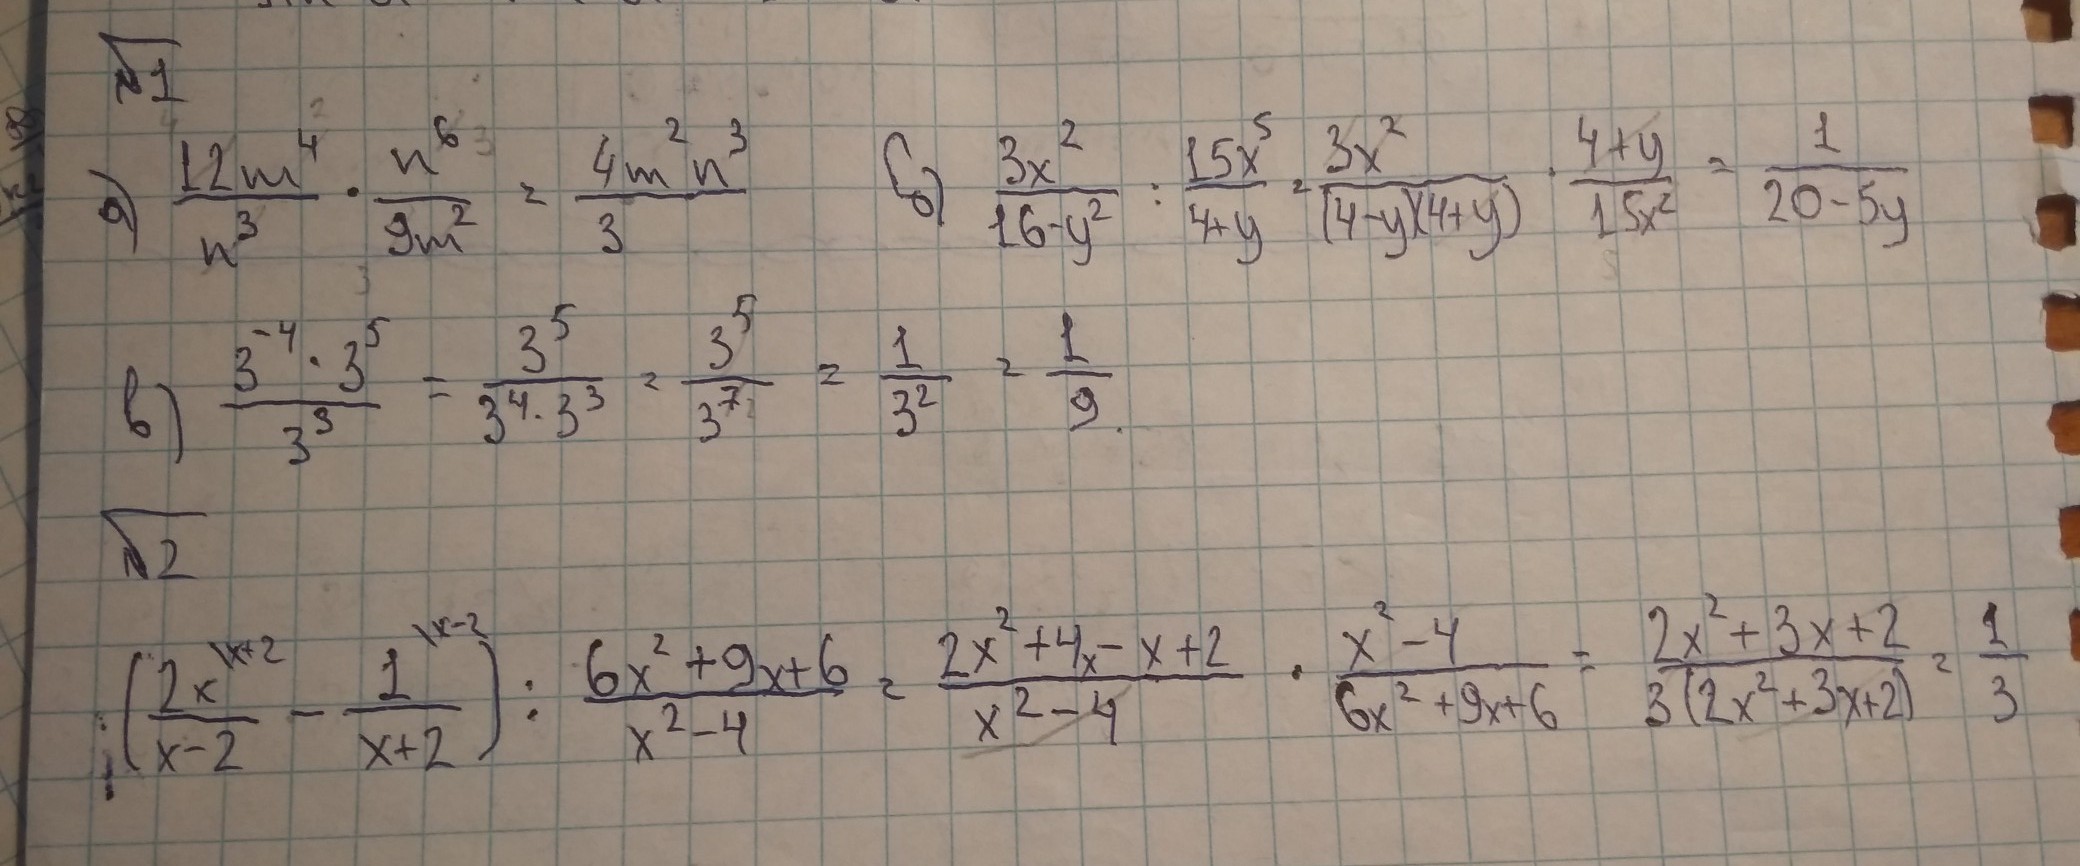 №1
а) \frac{12m^4}{n^3} · \frac{n^6}{9m^2} = \frac{4m^2n^3}{3} б) \frac{3x^2}{16-y^2} : \frac{15x^5}{4+y} = \frac{3x^2}{(4-y)(4+y)} · \frac{4+y}{15x^2} = \frac{1}{20-5y}
в) \frac{3^{-4} · 3^5}{3^3} = \frac{3^5}{3^4 · 3^3} = \frac{3^5}{3^7} = \frac{1}{3^2} = \frac{1}{9}.
№2
(\frac{2x^{\x+2}}{x-2} - \frac{1^{\x-2}}{x+2}) : \frac{6x^2+9x+6}{x^2-4} = \frac{2x^2+4x-x+2}{x^2-4} · \frac{x^2-4}{6x^2+9x+6} = \frac{2x^2+3x+2}{3(2x^2+3x+2)} = \frac{1}{3}